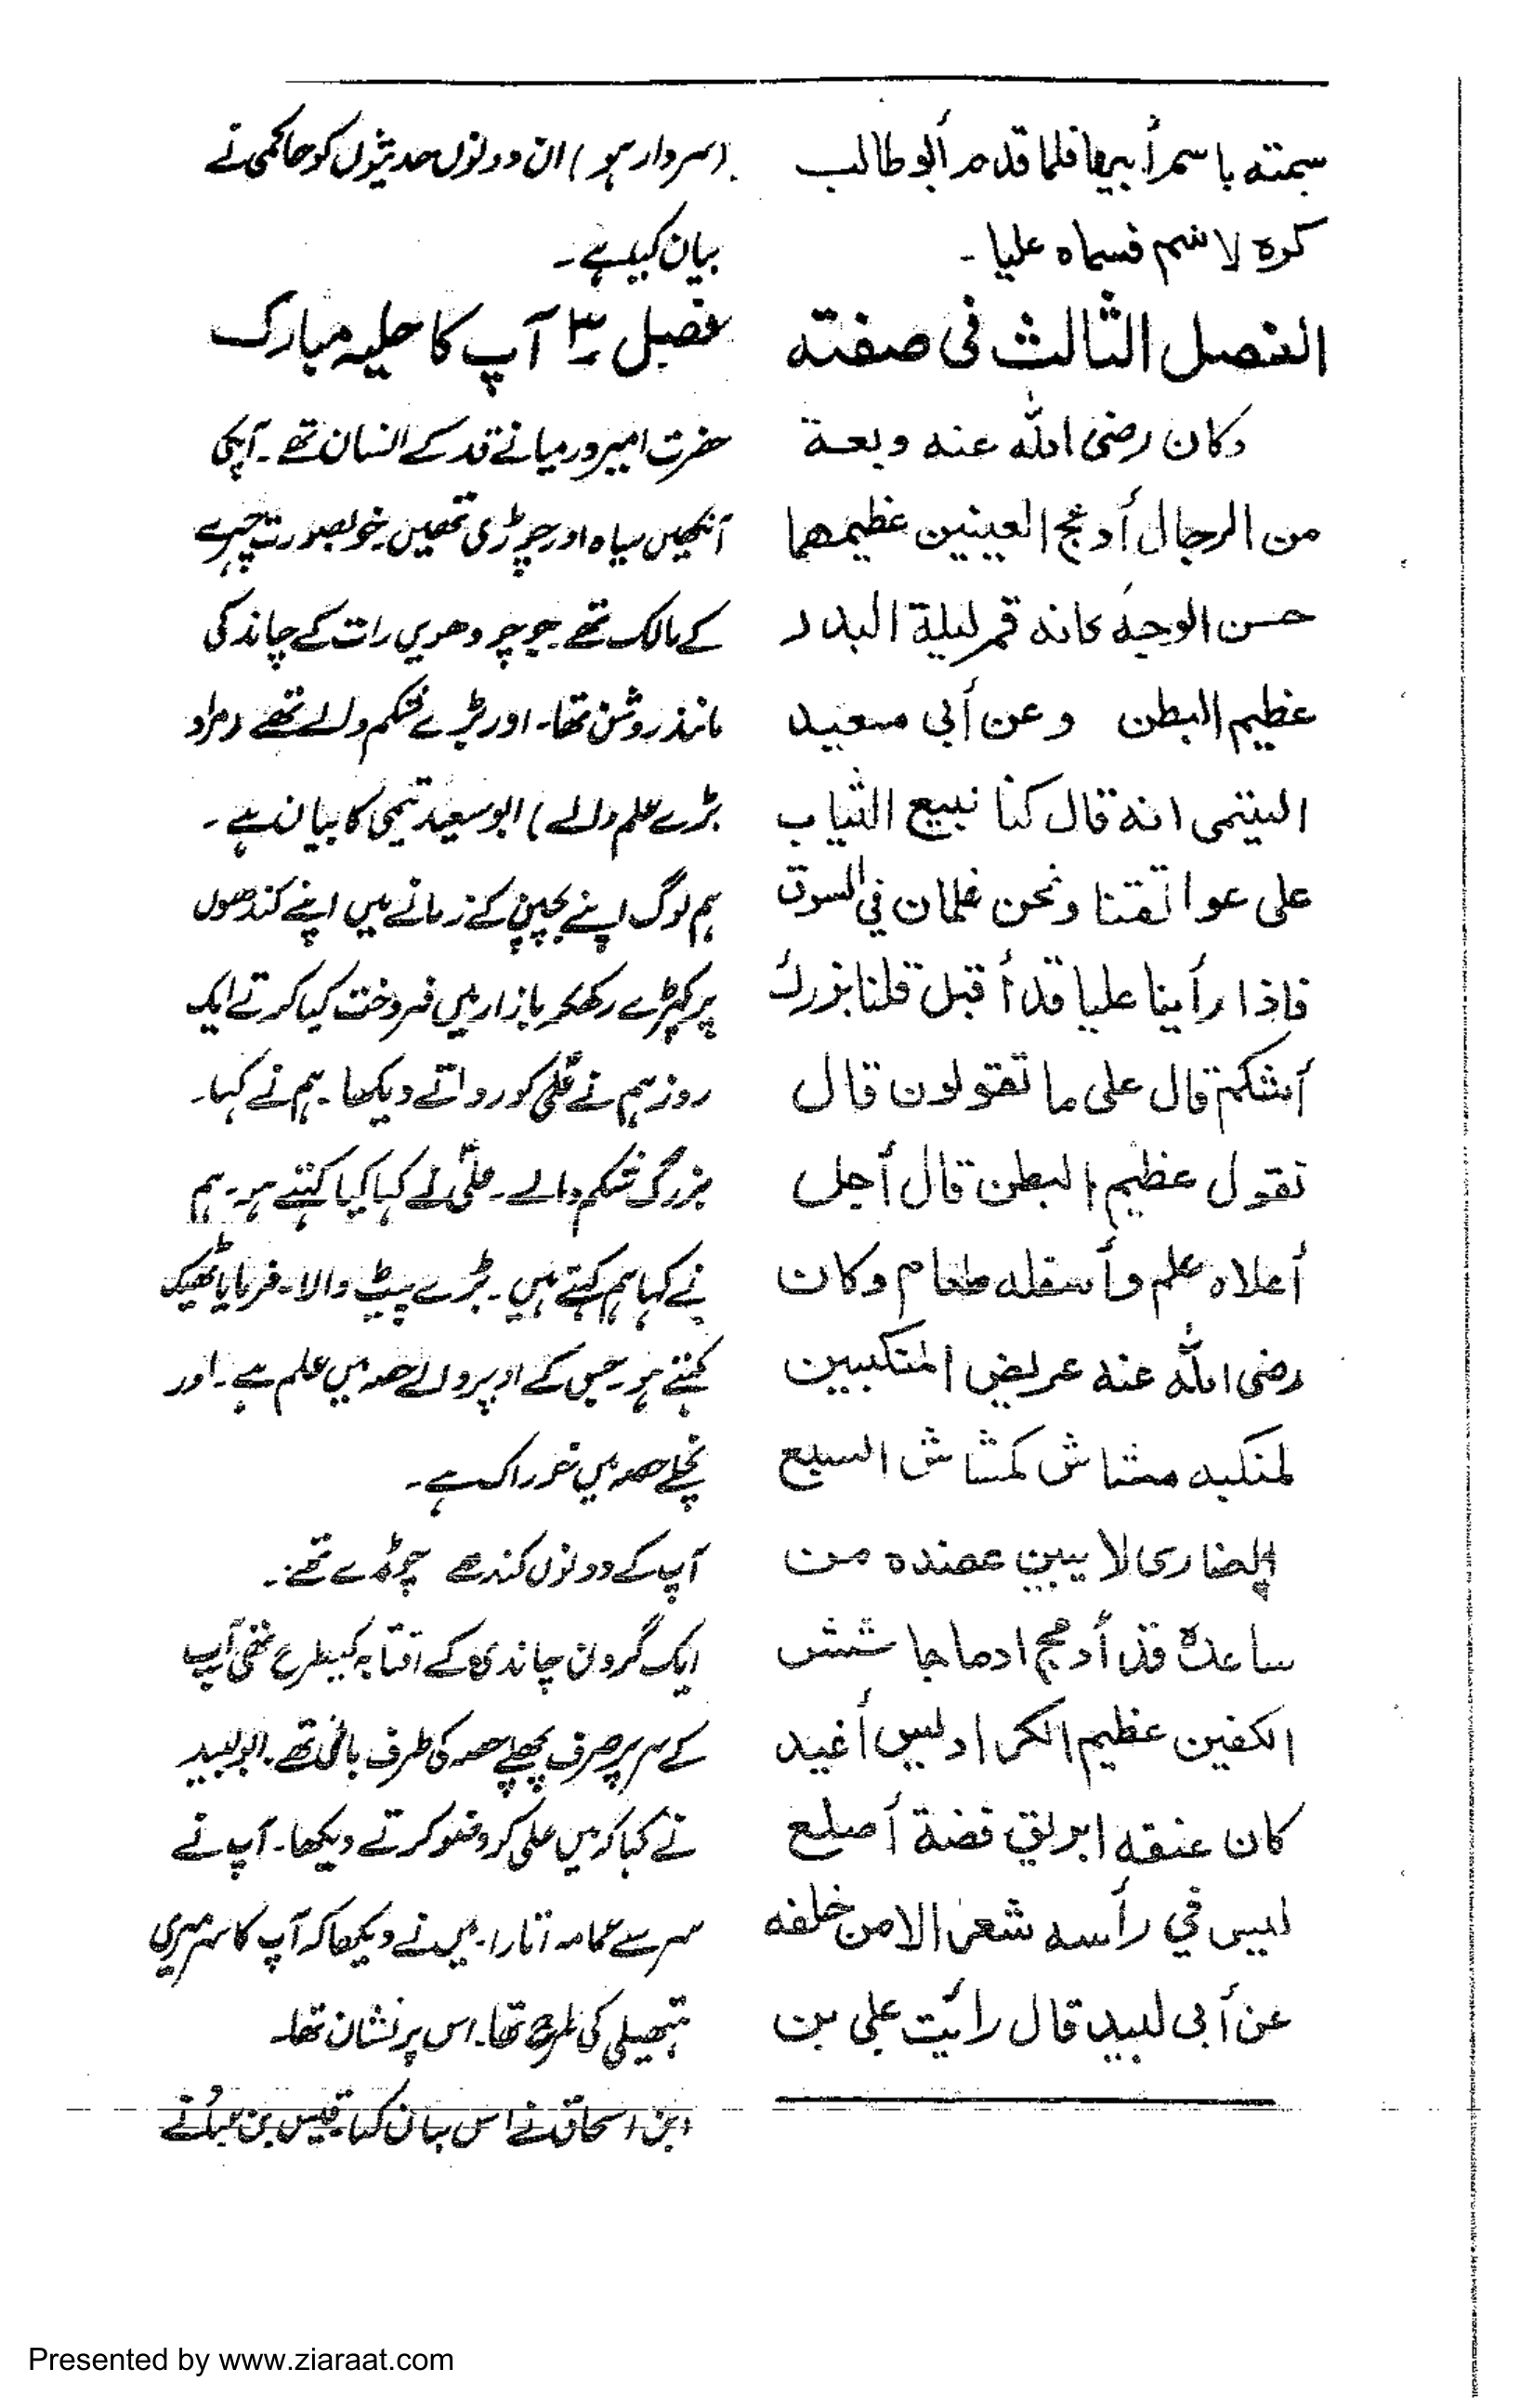 سمته باسم أبيها فلما قدم أبو طالب
كره لاسم فسماه عليا -
الفصل الثالث فى صفته
وكان رضى الله عنه وبعة
من الرجال أدعج العينين عظيمهما
حسن الوجه كانه قمر ليلة البدر
عظيم البطن وعن أبي سعيد
التيتمى انه قال كنا نبيع الثياب
على عواتقنا ونحن غلمان في السوق
فاذا رأينا عليا قد أقبل قلنا بزرك
أشكم قال على ما تقولون قال
نقول عظيم البطن قال أجل
أعلاه علم وأسفله طعام وكان
رضى الله عنه عريض المنكبين
لمنكبه مشاش كمشاش السبع
الضارى لا يبين عضده من
ساعده قد أدمج ادماجا شئش
الكفين عظيم الكراديس أغيد
كان عنقه ابريق فضة أصلع
ليس في رأسه شعر الا من خلفه
عن أبى لبيد قال رأيت علي بن
(سردار ہو) ان دونوں حدیثوں کو حاکمی نے
بیان کیا ہے۔
فصل ۳ آپ کا حلیہ مبارک
حضرت امیر درمیانے قد کے انسان تھے۔ آپکی
آنکھیں سیاہ اور چوڑی تھیں۔ خوبصورت چہرے
کے مالک تھے جو چودھویں رات کے چاند کی
مانند روشن تھا۔ اور بڑے شکم والے تھے (مراد
بڑے علم والے) ابو سعید تیمی کا بیان ہے۔
ہم لوگ اپنے بچپن کے زمانے میں اپنے کندھوں
پر کپڑے رکھکر بازار میں فروخت کیا کرتے ایک
روز ہم نے علی کو رو آتے دیکھا۔ ہم نے کہا۔
بزرگ شکم والے۔ علیؑ نے کہا کیا کہتے ہو۔ ہم
نے کہا ہم کہتے ہیں۔ بڑے پیٹ والا۔ فرمایا ٹھیک
کہتے ہو۔ جس کے اوپر والے حصہ میں علم ہے۔ اور
نچلے حصہ میں خوراک ہے۔
آپ کے دونوں کندھے چوڑے تھے۔
ایک گردن چاندی کے آفتابہ کیطرح تھی آپ
کے سر پر صرف پچھلے حصہ کی طرف بال تھے۔ ابو لبید
نے کہا کہ میں علی کو وضو کرتے دیکھا۔ آپ نے
سر سے عمامہ اتارا۔ میں نے دیکھا کہ آپ کا سر میری
ہتھیلی کی طرح تھا۔ اس پر نشان تھا۔
ابن اسحاق نے اس بیان کیا۔ قیس بن عباد نے
Presented by www.ziaraat.com